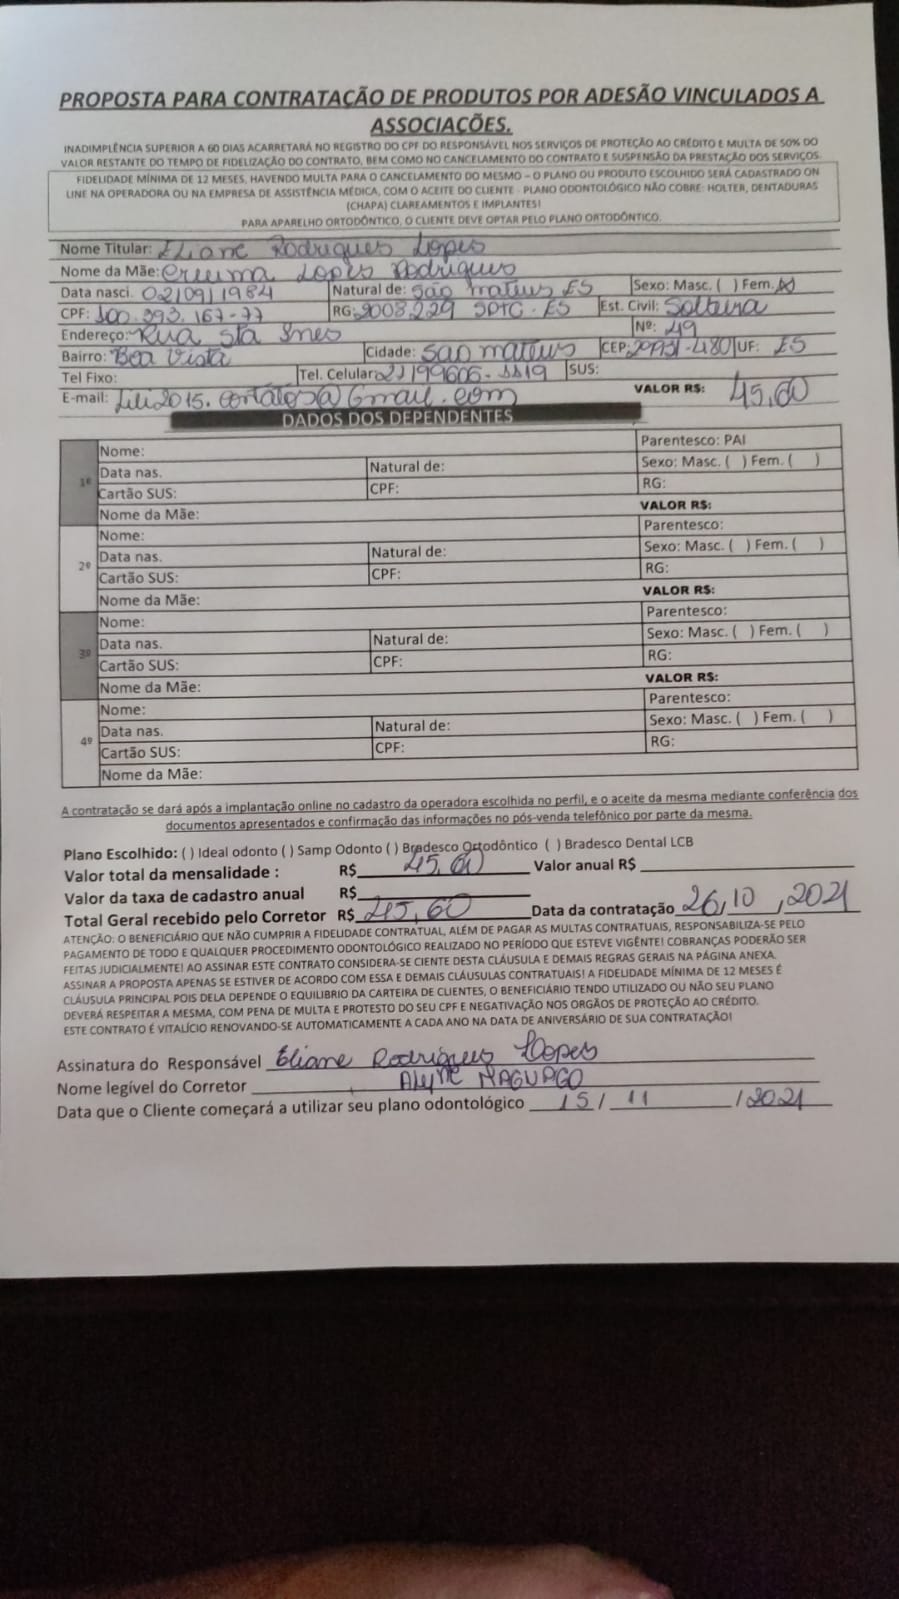 PROPOSTA PARA CONTRATAÇÃO DE PRODUTOS POR ADESÃO VINCULADOS A
ASSOCIAÇÕES.
INADIMPLÊNCIA SUPERIOR A 60 DIAS ACARRETARÁ NO REGISTRO DO CPF DO RESPONSÁVEL NOS SERVIÇOS DE PROTEÇÃO AO CRÉDITO E MULTA DE 50% DO
VALOR RESTANTE DO TEMPO DE FIDELIZAÇÃO DO CONTRATO, BEM COMO NO CANCELAMENTO DO CONTRATO E SUSPENSÃO DA PRESTAÇÃO DOS SERVIÇOS.
FIDELIDADE MÍNIMA DE 12 MESES, HAVENDO MULTA PARA O CANCELAMENTO DO MESMO – O PLANO OU PRODUTO ESCOLHIDO SERÁ CADASTRADO ON
LINE NA OPERADORA OU NA EMPRESA DE ASSISTÊNCIA MÉDICA, COM O ACEITE DO CLIENTE - PLANO ODONTOLÓGICO NÃO COBRE: HOLTER, DENTADURAS
(CHAPA) CLAREAMENTOS E IMPLANTES!
PARA APARELHO ORTODÔNTICO, O CLIENTE DEVE OPTAR PELO PLANO ORTODÔNTICO.
Nome Titular: Eliane Rodrigues Lopes
Nome da Mãe: Creuma Lopes Rodrigues
Data nasci. 02/09/1984 Natural de: São mateus ES Sexo: Masc. ( ) Fem. (X)
CPF: 100.393.167-77 RG: 2008,229 SPTC-ES Est. Civil: Solteira
Endereço: Rua Sta Ines Nº: 49
Bairro: Boa Vista Cidade: Sao mateus CEP: 29931-480 UF: ES
Tel Fixo: Tel. Celular: 99606-1119 SUS:
E-mail: VALOR R$: 45,60
DADOS DOS DEPENDENTES
1º Nome: Parentesco: PAI
Data nas. Natural de: Sexo: Masc. ( ) Fem. ( )
Cartão SUS: CPF: RG:
Nome da Mãe: VALOR R$:
2º Nome: Parentesco:
Data nas. Natural de: Sexo: Masc. ( ) Fem. ( )
Cartão SUS: CPF: RG:
Nome da Mãe: VALOR R$:
3º Nome: Parentesco:
Data nas. Natural de: Sexo: Masc. ( ) Fem. ( )
Cartão SUS: CPF: RG:
Nome da Mãe: VALOR R$:
4º Nome: Parentesco:
Data nas. Natural de: Sexo: Masc. ( ) Fem. ( )
Cartão SUS: CPF: RG:
Nome da Mãe:
A contratação se dará após a implantação online no cadastro da operadora escolhida no perfil, e o aceite da mesma mediante conferência dos
documentos apresentados e confirmação das informações no pós-venda telefônico por parte da mesma.
Plano Escolhido: ( ) Ideal odonto ( ) Samp Odonto ( ) Bradesco Ortodôntico ( ) Bradesco Dental LCB
Valor total da mensalidade : R$ 45,60 Valor anual R$
Valor da taxa de cadastro anual R$
Total Geral recebido pelo Corretor R$ 45,60 Data da contratação 26/10/2021
ATENÇÃO: O BENEFICIÁRIO QUE NÃO CUMPRIR A FIDELIDADE CONTRATUAL, ALÉM DE PAGAR AS MULTAS CONTRATUAIS, RESPONSABILIZA-SE PELO
PAGAMENTO DE TODO E QUALQUER PROCEDIMENTO ODONTOLÓGICO REALIZADO NO PERÍODO QUE ESTEVE VIGÊNTE! COBRANÇAS PODERÃO SER
FEITAS JUDICIALMENTE! AO ASSINAR ESTE CONTRATO CONSIDERA-SE CIENTE DESTA CLÁUSULA E DEMAIS REGRAS GERAIS NA PÁGINA ANEXA.
ASSINAR A PROPOSTA APENAS SE ESTIVER DE ACORDO COM ESSA E DEMAIS CLÁUSULAS CONTRATUAIS! A FIDELIDADE MÍNIMA DE 12 MESES É
CLÁUSULA PRINCIPAL POIS DELA DEPENDE O EQUILIBRIO DA CARTEIRA DE CLIENTES, O BENEFICIÁRIO TENDO UTILIZADO OU NÃO SEU PLANO
DEVERÁ RESPEITAR A MESMA, COM PENA DE MULTA E PROTESTO DO SEU CPF E NEGATIVAÇÃO NOS ORGÃOS DE PROTEÇÃO AO CRÉDITO.
ESTE CONTRATO É VITALÍCIO RENOVANDO-SE AUTOMATICAMENTE A CADA ANO NA DATA DE ANIVERSÁRIO DE SUA CONTRATAÇÃO!
Assinatura do Responsável Eliane Rodrigues Lopes
Nome legível do Corretor Alyne MAGNAGO
Data que o Cliente começará a utilizar seu plano odontológico 15 / 11 / 2021